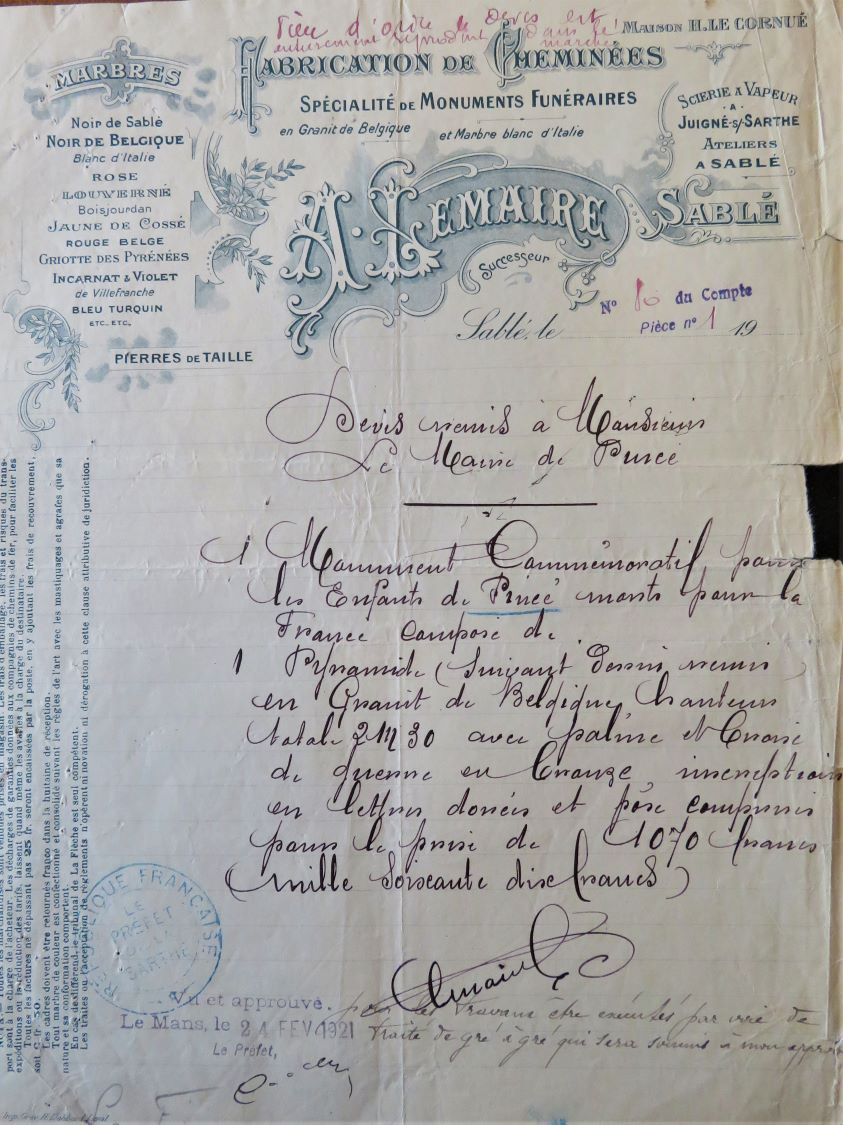 devis est
entièrement reproduit dans le
marché
MAISON H. LE CORNUÉ
FABRICATION DE CHEMINÉES
SPÉCIALITÉ DE MONUMENTS FUNÉRAIRES
en Granit de Belgique et Marbre blanc d'Italie
SCIERIE A VAPEUR
A
JUIGNÉ-S/-SARTHE
ATELIERS
A SABLÉ
MARBRES
Noir de Sablé
NOIR DE BELGIQUE
Blanc d'Italie
ROSE
LOUVERNÉ
Boisjourdan
JAUNE DE COSSÉ
ROUGE BELGE
GRIOTTE DES PYRÉNÉES
INCARNAT & VIOLET
de Villefranche
BLEU TURQUIN
ETC., ETC.
PIERRES DE TAILLE
A. LEMAIRE
Successeur
SABLÉ
N° du Compte
Pièce n° 1
Sablé, le 19
Devis remis à Monsieur
Le Maire de Pincé
1 Monument Commémoratif pour
les Enfants de Pincé morts pour la
France composé de
1 Pyramide (suivant dessin remis)
en Granit de Belgique hauteur
totale 2M30 avec palme et Croix
de guerre en Bronze, inscription
en lettres dorées et pose comprises
pour le prix de 1070 francs
(mille soixante dix francs)
ALemaire
RÉPUBLIQUE FRANÇAISE
LE
PRÉFET
DE LA
SARTHE
Vu et approuvé. pour les travaux être exécutés par voie de
Le Mans, le 24 FEV 1921 traité de gré à gré qui sera soumis à mon appro
Le Préfet,
port sont à la charge de l'acheteur. Les décharges de garanties données aux compagnies de chemins de fer, pour faciliter les
expéditions ou la réduction des tarifs, laissent quand même les avaries à la charge du destinataire.
Toutes les factures ne dépassant pas 25 fr. seront encaissées par la poste, en y ajoutant les frais de recouvrement,
soit 0 fr. 50.
Les cadres doivent être retournés franco dans la huitaine de réception.
Tout marbre de couleur est confectionné et consolidé suivant les règles de l'art avec les mastiquages et agrafes que sa
nature et sa conformation comportent.
En cas de différend, le tribunal de La Flèche est seul compétent.
Les traites ou l'acceptation de règlements n'opèrent ni novation ni dérogation à cette clause attributive de juridiction.